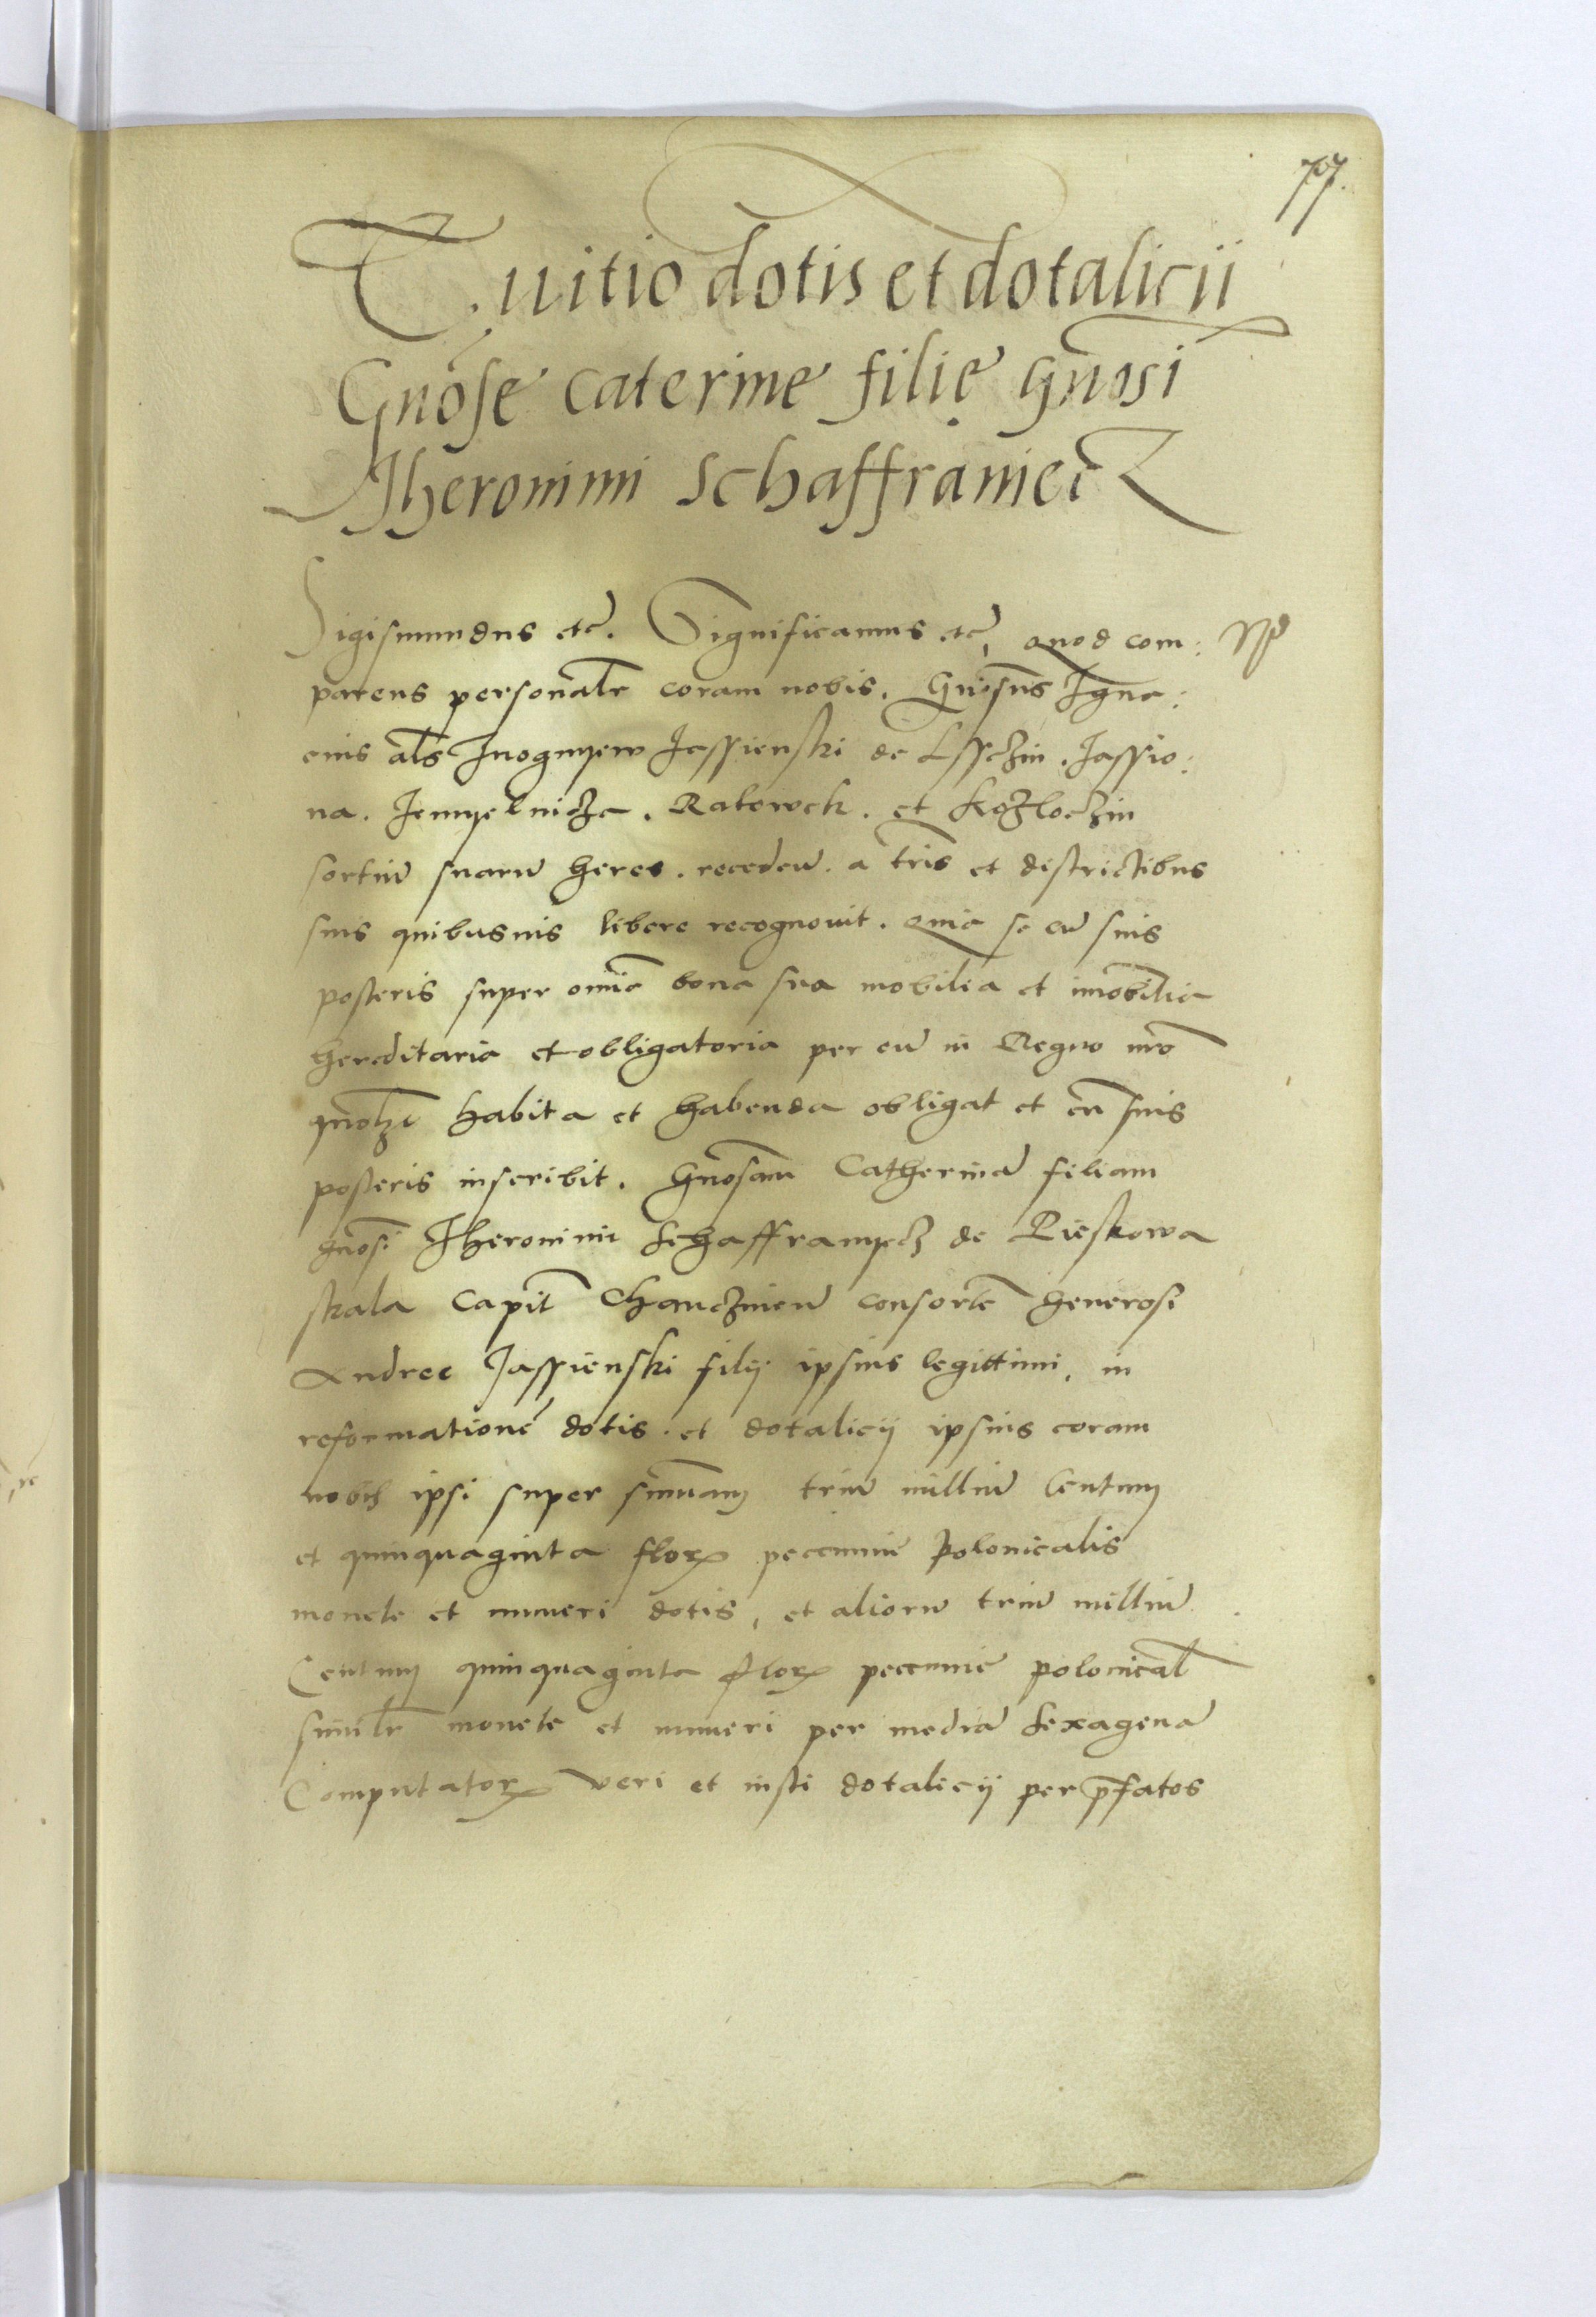 77.
Tuitio dotis et dotalicii
Gnose Caterine filie gnosi
Jheronimi Schaffraniecz
Sigismundus etc. Significamus etc, quod com:
parens personalr coram nobis. Gnosus Igna:
cius als Inognyew Jassienski de Lssczin. Jassio:
na. Jemyelnicza. Ratowek. et
sortiu suaru heres. receden. a tris et districtibus
suis quibusuis libere recognouit. quia se cu suis
posteris super omia bona sua mobilia et imobilia
hereditaria et obligatoria per eu in Regno nro
quolzt habita et habenda obligat et cu suis
posteris inscribit. Gnosam Catherina filiam
gnosi Jheronimi Schaffranyecz de Pieskowa
skala Capit Chanczinen consorte Generosi
Andree Jassienski filij ipsius legittimi, in
reformatione dotis. et dotalicij ipsius coram
nobis ipsi super summam triu milliu Centum
et quinquaginta flor peccunie Polonicalis
monete et numeri dotis, et alioru triu milliu
Centum quinquaginta flor peccunie polonical
similr monete et numeri per media sexagena
Computator veri et iusti dotalicij per pfatos